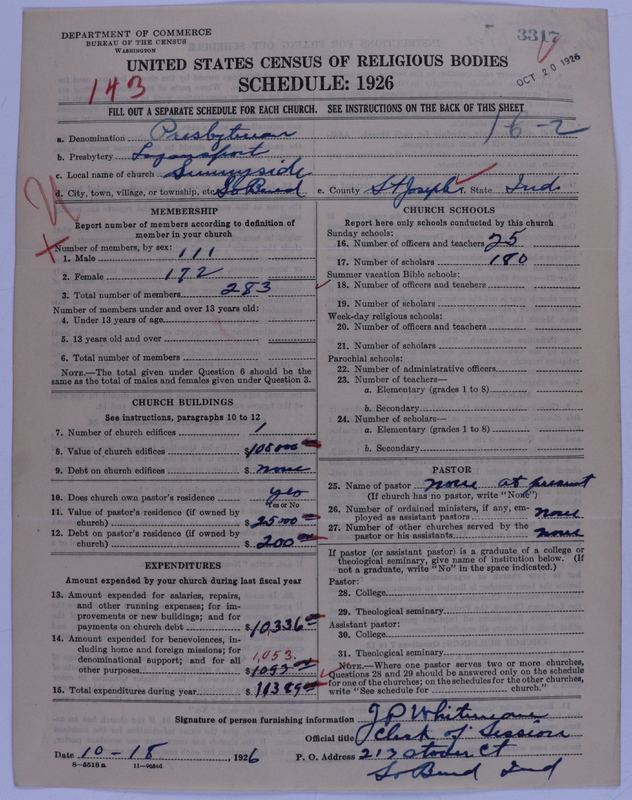 DEPARTMENT OF COMMERCE
BUREAU OF THE CENSUS
WASHINGTON
3317
UNITED STATES CENSUS OF RELIGIOUS BODIES
SCHEDULE: 1926
OCT 20 1926
143
FILL OUT A SEPARATE SCHEDULE FOR EACH CHURCH. SEE INSTRUCTIONS ON THE BACK OF THIS SHEET
16-2
a. Denomination Presbyterian
b. Presbytery Logansport
c. Local name of church Sunnyside
d. City, town, village, or township, etc. So Bend e. County St Joseph f. State Ind.
MEMBERSHIP
Report number of members according to definition of
member in your church
Number of members, by sex:
1. Male 111
2. Female 172
3. Total number of members 283
Number of members under and over 13 years old:
4. Under 13 years of age
5. 13 years old and over
6. Total number of members
NOTE.—The total given under Question 6 should be
the same as the total of males and females given under Question 3.
CHURCH BUILDINGS
See instructions, paragraphs 10 to 12
7. Number of church edifices 1
8. Value of church edifices $108000
9. Debt on church edifices $ none
10. Does church own pastor's residence yes
Yes or No
11. Value of pastor's residence (if owned by
church) $2500
12. Debt on pastor's residence (if owned by
church) $200
EXPENDITURES
Amount expended by your church during last fiscal year
13. Amount expended for salaries, repairs,
and other running expenses; for im-
provements or new buildings; and for
payments on church debt $10,336
14. Amount expended for benevolences, in-
cluding home and foreign missions; for
denominational support; and for all
other purposes 1,053. $1053
15. Total expenditures during year $11389
CHURCH SCHOOLS
Report here only schools conducted by this church
Sunday schools:
16. Number of officers and teachers 25
17. Number of scholars 180
Summer vacation Bible schools:
18. Number of officers and teachers
19. Number of scholars
Week-day religious schools:
20. Number of officers and teachers
21. Number of scholars
Parochial schools:
22. Number of administrative officers
23. Number of teachers—
a. Elementary (grades 1 to 8)
b. Secondary
24. Number of scholars—
a. Elementary (grades 1 to 8)
b. Secondary
PASTOR
25. Name of pastor none at present
(If church has no pastor, write "None")
26. Number of ordained ministers, if any, em-
ployed as assistant pastors none
27. Number of other churches served by the
pastor or his assistants none
If pastor (or assistant pastor) is a graduate of a college or
theological seminary, give name of institution below. (If
not a graduate, write "No" in the space indicated.)
Pastor:
28. College
29. Theological seminary
Assistant pastor:
30. College
31. Theological seminary
NOTE.—Where one pastor serves two or more churches,
Questions 28 and 29 should be answered only on the schedule
for one of the churches; on the schedules for the other churches,
write "See schedule for church."
Signature of person furnishing information J P Whiteman
Official title Clerk of Session
Date 10-18, 1926 P. O. Address 213 Stover Ct
8—5518a
So Bend Ind